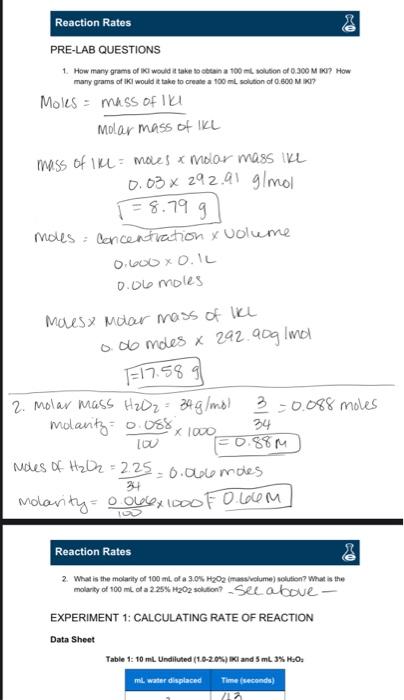 Reaction Rates
PRE-LAB QUESTIONS
1. How many grams of IKI would it take to obtain a 100 mL solution of 0.300 M IKI? How
many grams of IKI would it take to create a 100 mL solution of 0.600 M IKI?
Moles = mass of IKI
molar mass of IKI
mass of IKI = moles x molar mass IKI
0.03 x 292.91 g/mol
= 8.79 g
moles = concentration x volume
0.600 x 0.1L
0.06 moles
Moles x Molar mass of IKI
0.06 moles x 292.90g/mol
= 17.58 g
2. Molar Mass H2O2 = 34g/mol 3/34 = 0.088 moles
molarity = 0.088/100 x 1000 = 0.88M
Moles of H2O2 = 2.25/34 = 0.066 moles
molarity = 0.066/100 x 1000 = 0.66M
Reaction Rates
2. What is the molarity of 100 mL of a 3.0% H2O2 (mass/volume) solution? What is the
molarity of 100 mL of a 2.25% H2O2 solution? - See above -
EXPERIMENT 1: CALCULATING RATE OF REACTION
Data Sheet
Table 1: 10 mL Undiluted (1.0-2.0%) IKI and 5 mL 3% H2O2
mL water displaced Time (seconds)